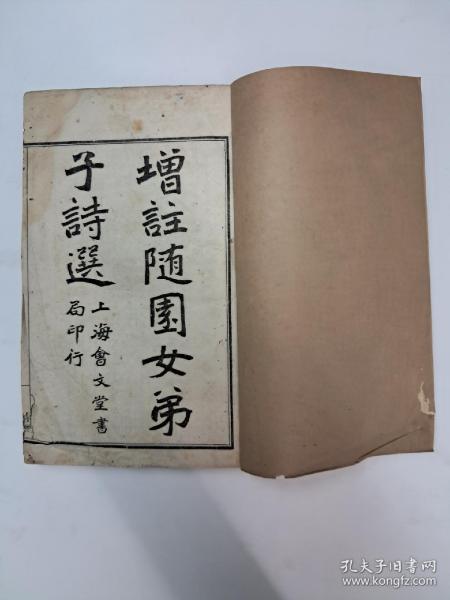 增註随園女弟
子詩選
上海會文堂書
局印行
孔夫子旧书网
www.kongfz.com